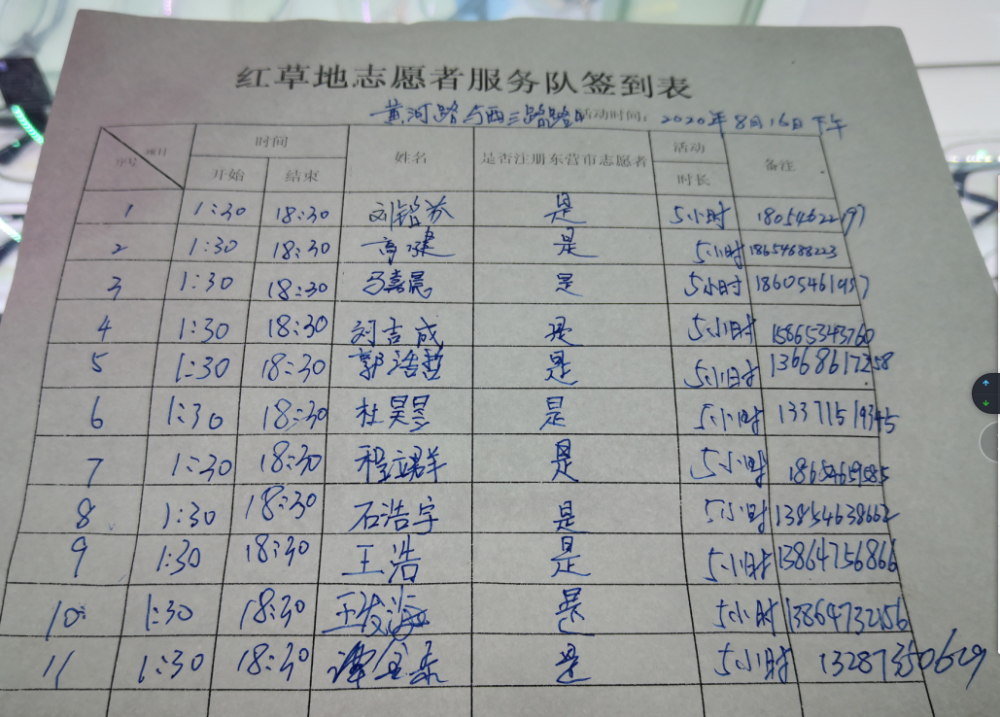 红草地志愿者服务队签到表
黄河路与西三路路口 活动时间：2020年8月16日下午
序号 项目 时间 姓名 是否注册东营市志愿者 活动 备注
开始 结束 时长
1 1:30 18:30 刘铭芬 是 5小时
2 1:30 18:30 高健 是 5小时 18654688223
3 1:30 18:30 马嘉晨 是 5小时 18605461997
4 1:30 18:30 刘吉成 是 5小时 15865343760
5 1:30 18:30 郭浩哲 是 5小时 13668617258
6 1:30 18:30 杜昊 是 5小时 13371519345
7 1:30 18:30 程立群 是 5小时 18654659585
8 1:30 18:30 石浩宇 是 5小时 13854638662
9 1:30 18:30 王浩 是 5小时 13864756866
10 1:30 18:30 王发海 是 5小时 13864732156
11 1:30 18:30 是 5小时 13287350629